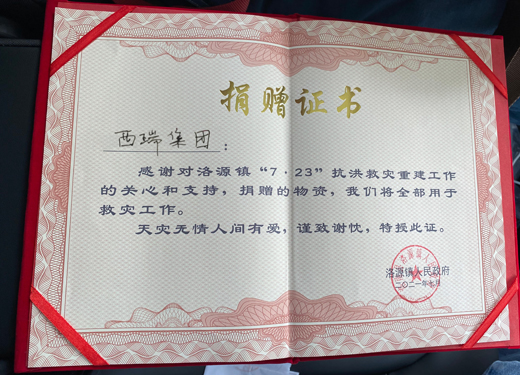 捐赠证书
西瑞集团：
感谢对洛源镇“7·23”抗洪救灾重建工作
的关心和支持，捐赠的物资，我们将全部用于
救灾工作。
天灾无情人间有爱，谨致谢忱，特授此证。
洛源镇人民政府
二〇二一年七月